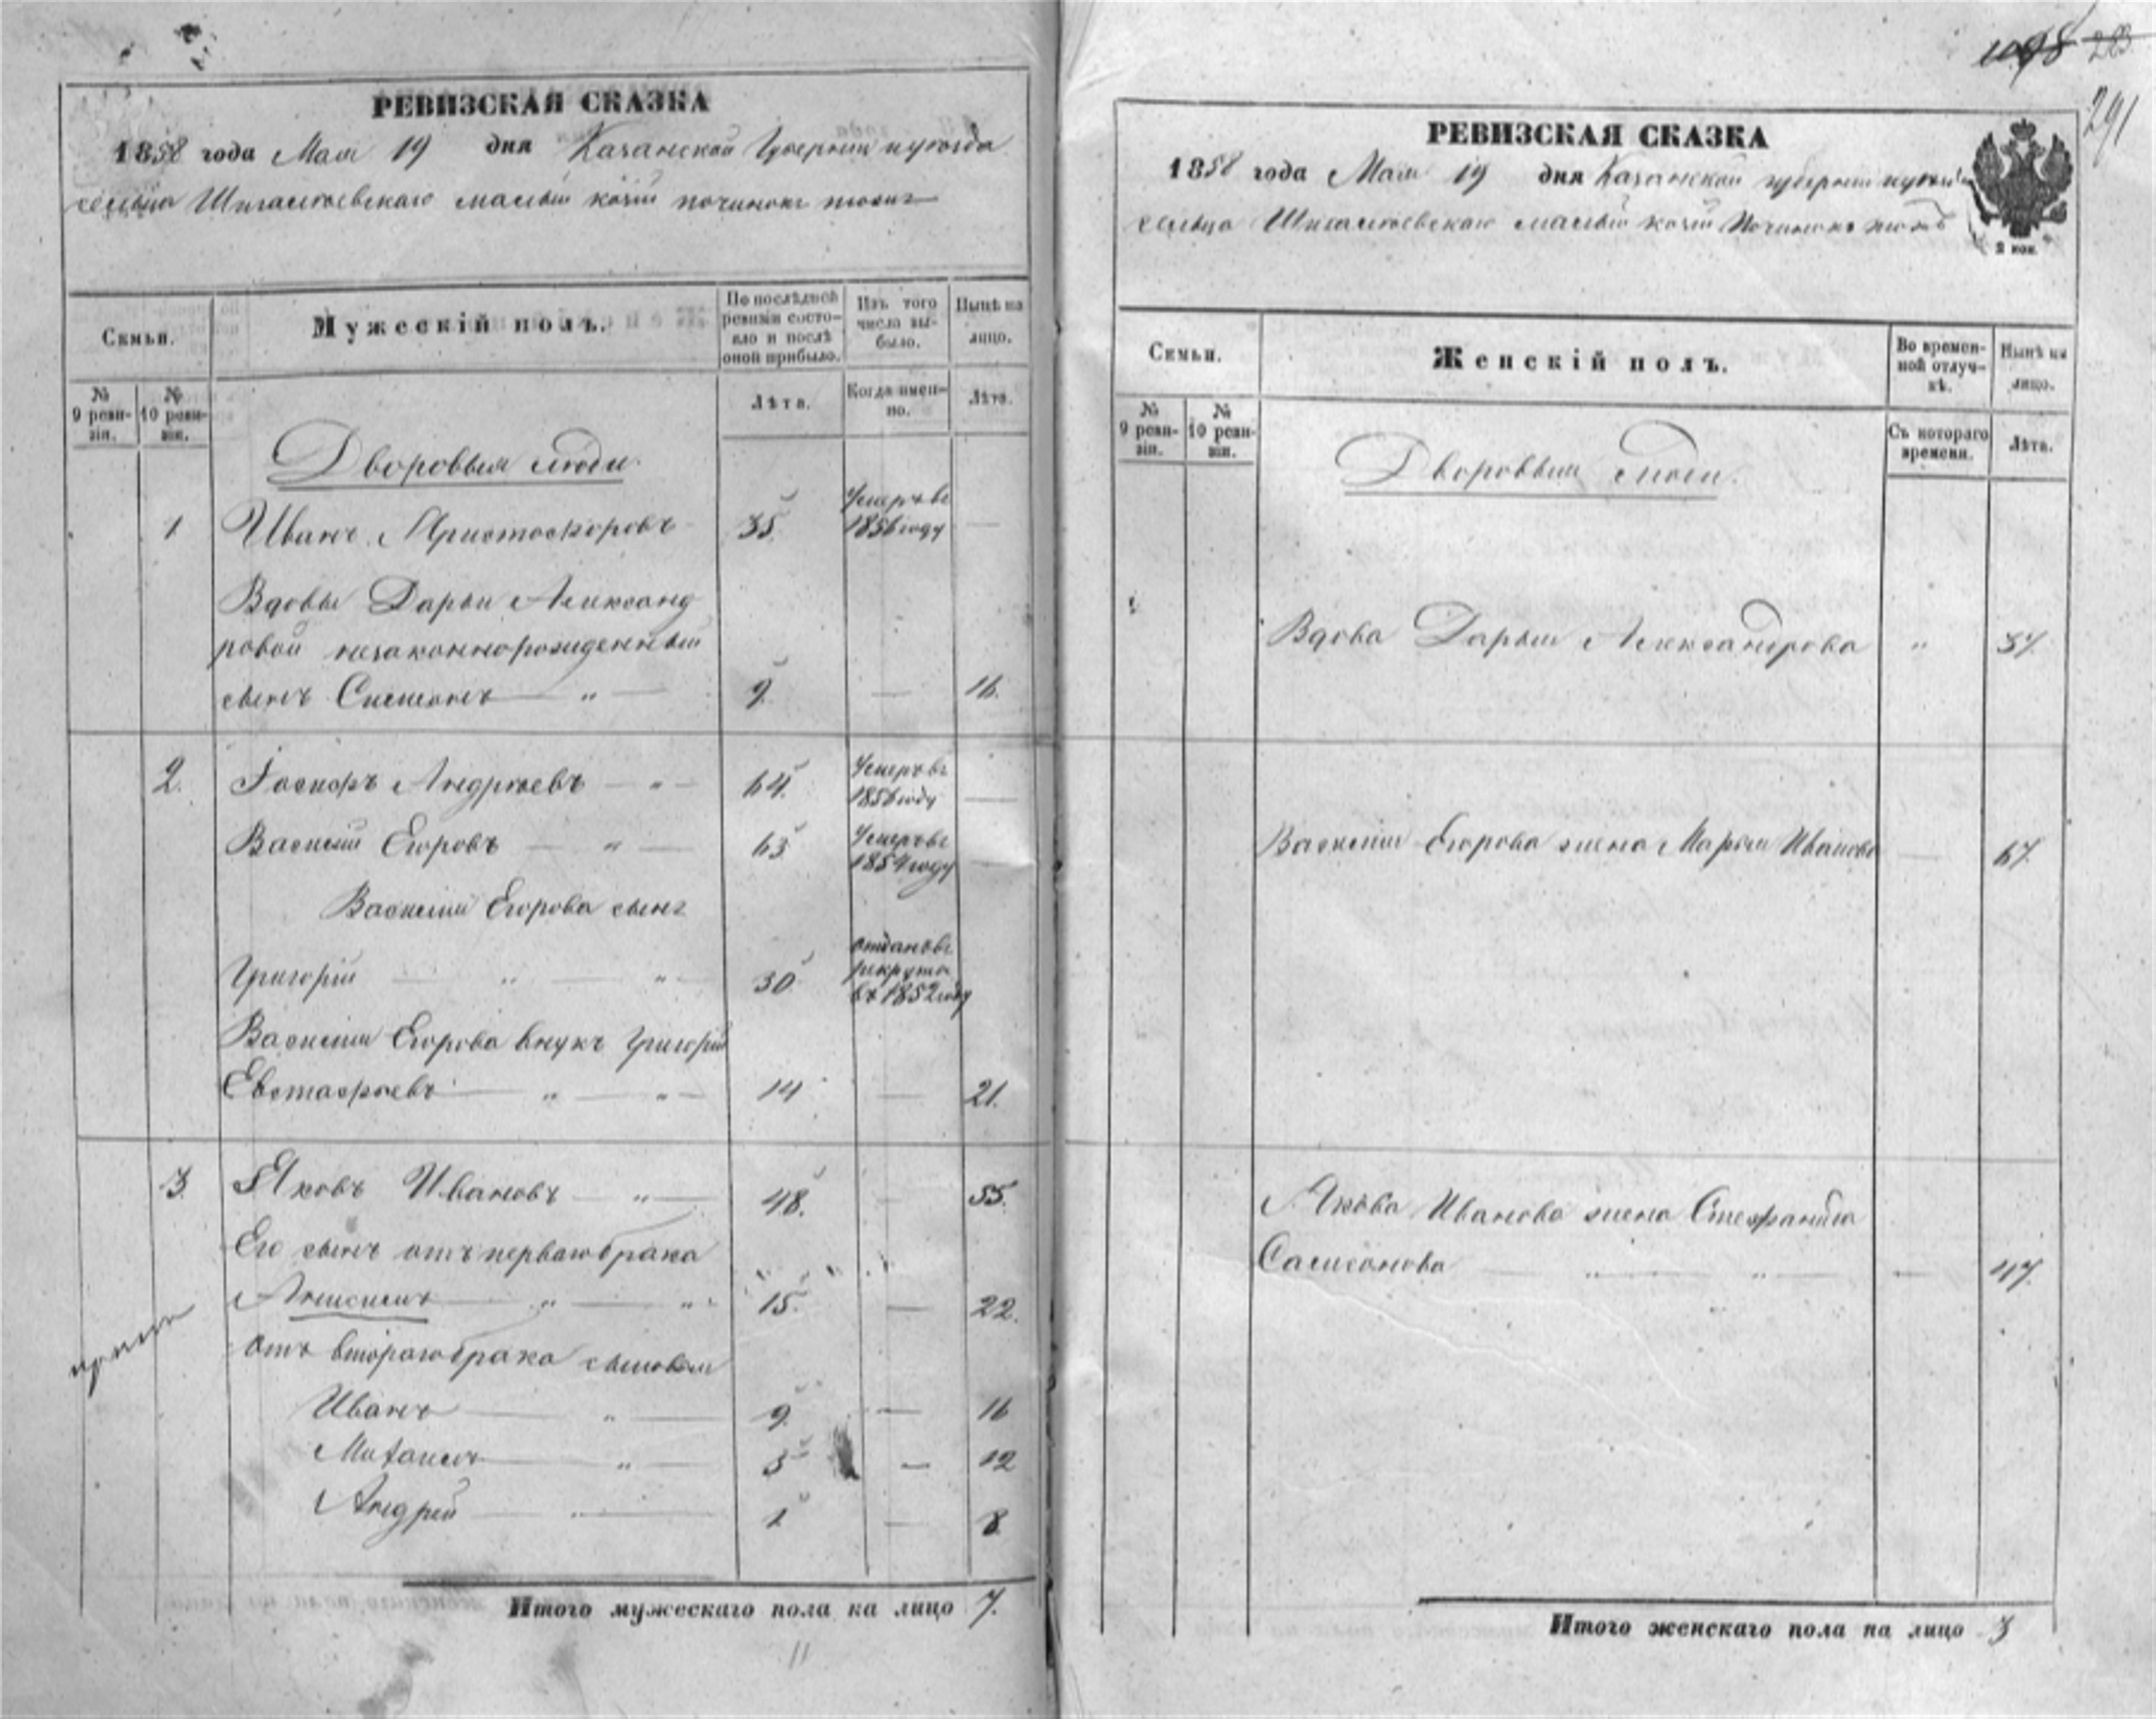 РЕВИЗСКАЯ СКАЗКА
1858 года Мая 19 дня Казанской Губернии и уезда
сельца малый починокъ тожъ
Семьи.
Мужескій полъ.
По послѣдней ревизіи состо-
яло и послѣ
оной прибыло.
Изъ того
числа вы-
было.
Нынѣ на
лицо.
№
9 реви-
зіи.
№
10 реви-
зіи.
Лѣта.
Когда имен-
но.
Лѣта.
Дворовыя люди.
1 Иванъ Христофоровъ 35 Умеръ въ
1856 году —
Вдовы Дарьи Александ
ровой незаконнорожденный
сынъ Симеонъ — „ — 9. — 16.
2. Андреевъ — „ — 64. Умеръ въ
1856 году —
Василий Егоровъ — „ — 63 Умеръ въ
1854 году —
Василия Егорова сынъ
Григорий — „ — „ — 30 отданъ въ
рекруты
въ 1852 году
Василия Егорова внукъ Григорий
Евстафьевъ — „ — „ — 14 — 21.
3. Яковъ Ивановъ — „ — 48. — 55.
Его сынъ отъ перваго брака
— „ — „ 15. — 22.
отъ втораго брака сыновья
Иванъ — „ — 9. — 16
Михаилъ — „ — 5 — 12
Андрей — 1 — 8
Итого мужескаго пола на лицо 7.
11
1098 283
291
РЕВИЗСКАЯ СКАЗКА
1858 года Мая 19 дня Казанской губернии и уезда
сельца малый Починокъ тожъ
2 коп.
Семьи.
Женскій полъ.
Во времен-
ной отлуч-
кѣ.
Нынѣ на
лицо.
№
9 реви-
зіи.
№
10 реви-
зіи.
Съ котораго
времени.
Лѣта.
Дворовыя люди.
Вдова Дарья Александрова „ 37.
Василия Егорова жена Марья Иванова — 67.
Якова Иванова жена Стефанида
Самсонова — „ — „ — 47.
Итого женскаго пола на лицо 3